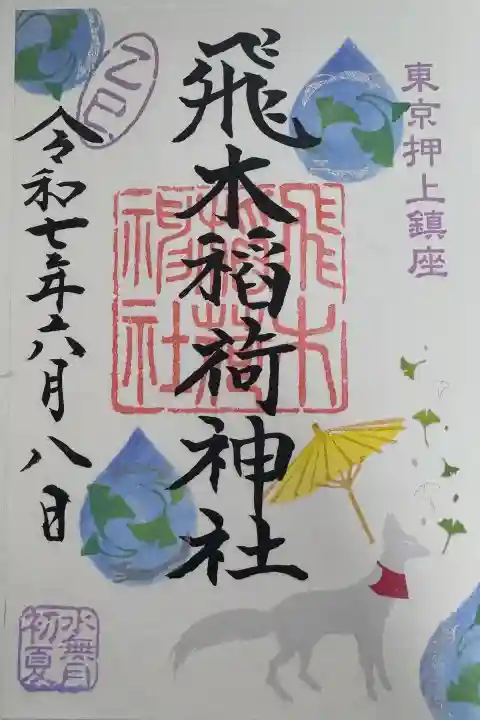 東京押上鎮座
飛木稲荷神社
飛木
稲荷
神社
令和七年六月八日
水無月
初夏